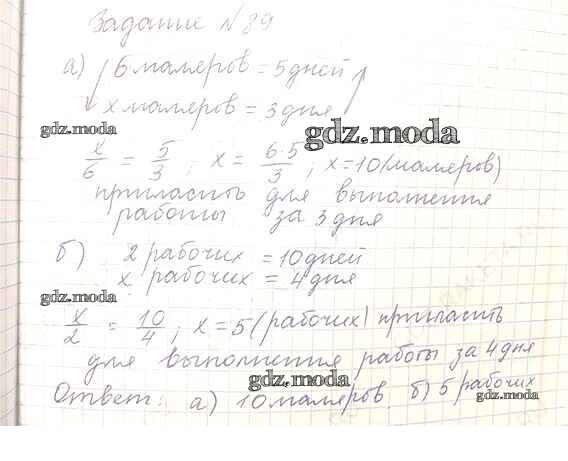 Задание №89
а) 6 маляров = 5 дней
x маляров = 3 дня
gdz.moda
gdz.moda
x/6 = 5/3 ; x = 6·5/3 ; x = 10 (маляров)
пригласить для выполнения
работы за 3 дня
б) 2 рабочих = 10 дней
x рабочих = 4 дня
gdz.moda
x/2 = 10/4 ; x = 5 (рабочих) пригласить
для выполнения работы за 4 дня
gdz.moda
Ответ: а) 10 маляров, б) 5 рабочих
gdz.moda